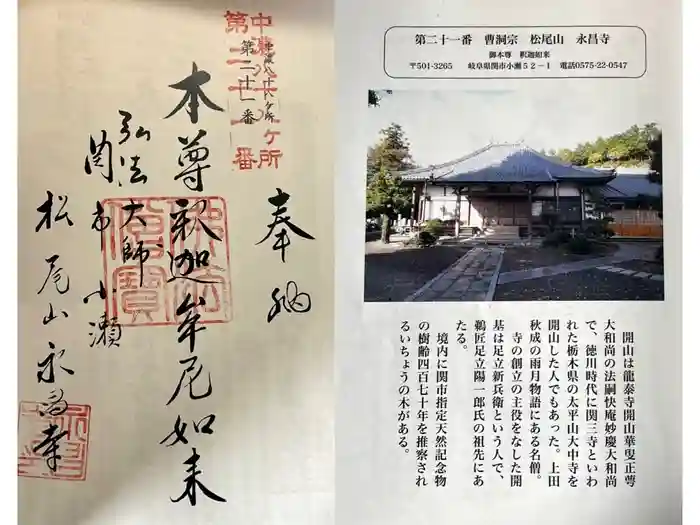 奉納
中濃八十八ヶ所
第二十一番
本尊釈迦牟尼如来
弘法大師
関市小瀬
松尾山永昌寺
第二十一番　曹洞宗　松尾山　永昌寺
御本尊　釈迦如来
〒501-3265　岐阜県関市小瀬５２－１　電話0575-22-0547
開山は龍泰寺開山華叟正萼
大和尚の法嗣快庵妙慶大和尚
で、徳川時代に関三寺といわ
れた栃木県の太平山大中寺を
開山した人でもあった。上田
秋成の雨月物語にある名僧。
寺の創立の主役をなした開
基は足立新兵衛という人で、
鵜匠足立陽一郎氏の祖先にあ
たる。
境内に関市指定天然記念物
の樹齢四百七十年を推察され
るいちょうの木がある。